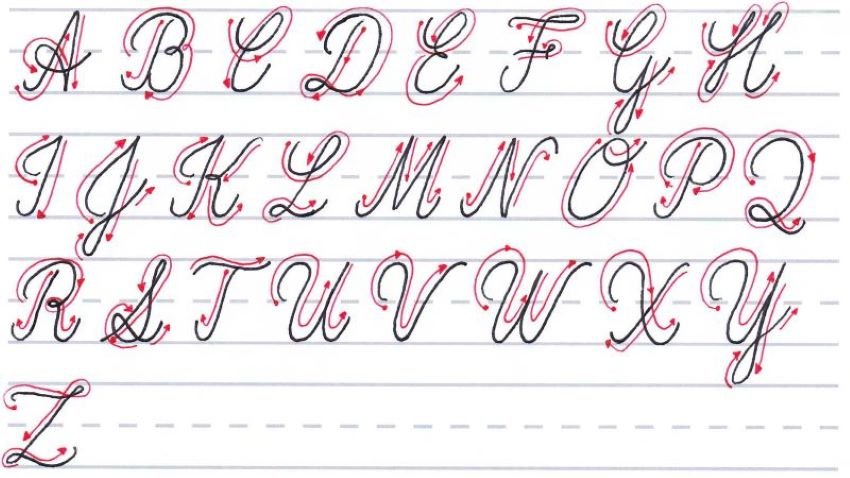 A B C D E F G H
I J K L M N O P Q
R S T U V W X Y
Z